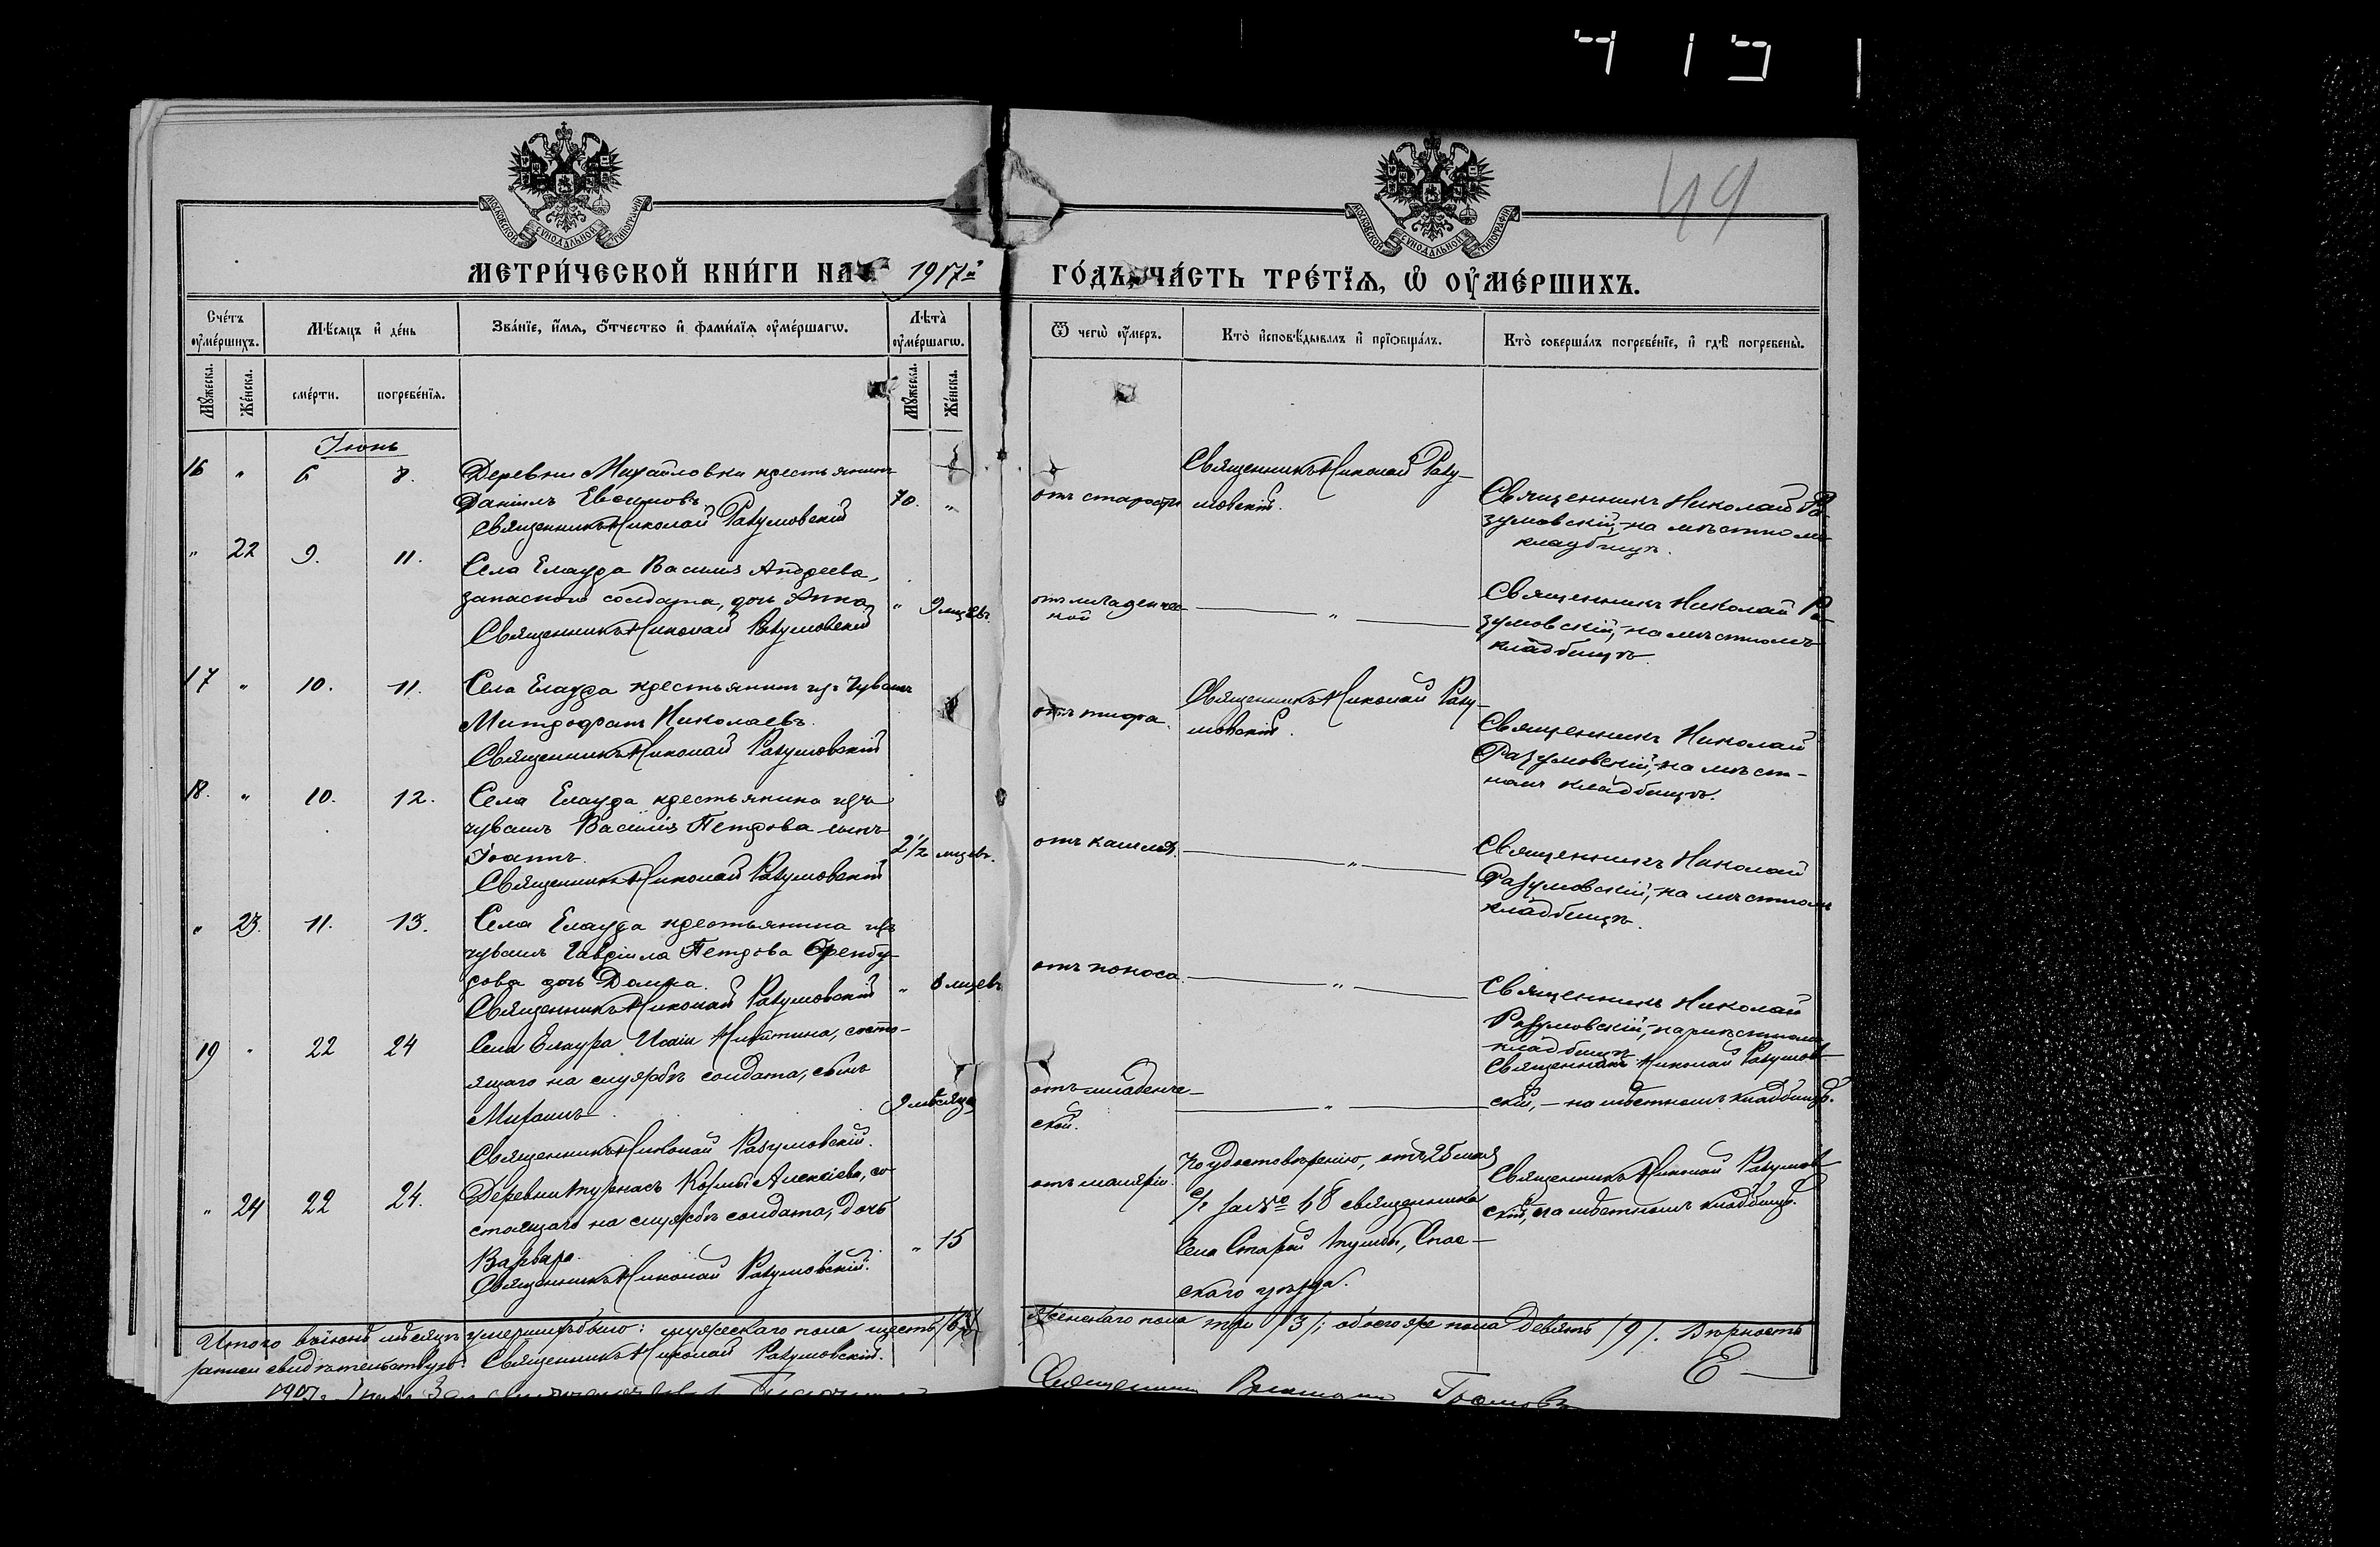 415
49
МОСКОВСКОЙ СѴНОДАЛЬНОЙ ТИПОГРАФІИ
МОСКОВСКОЙ СѴНОДАЛЬНОЙ ТИПОГРАФІИ
МЕТРИ́ЧЕСКОЙ КНИ́ГИ НА 1917й ГО́ДЪ, ЧА́СТЬ ТРЕ́ТЇѦ, Ѡ ОУ҆МЕ́РШИХЪ.
Сче́тъ оу҆ме́ршихъ.
Мѣ́сяцъ и҆ де́нь
Зва́нїе, и҆́мѧ, ѻ҆́тчество и҆ фами́лїѧ оу҆ме́ршагѡ.
Лѣ́та оу҆ме́ршагѡ.
Ѿ чегѡ̀ оу҆́меръ.
Кто̀ и҆сповѣ́дывалъ и҆ прїѡбща́лъ.
Кто̀ соверша́лъ погребе́нїе, и҆ гдѣ̀ погребены̀.
Мꙋ́жеска.
Же́нска.
сме́рти.
погребе́нїѧ.
Мꙋ́жеска.
Же́нска.
Іюнь
16 " 6 8.
Деревни Михайловки крестьянинъ
Даніилъ Евсимовъ
Священникъ Николай Разумовскій
70. "
отъ старости
Священникъ Николай Разу-
мовскій.
Священникъ Николай Ра-
зумовскій, на мѣстномъ
кладбищѣ.
" 22 9. 11.
Села Елаура Василія Андреева,
запаснаго солдата, дочь Анна
Священникъ Николай Разумовскій
" 9 мцевъ.
отъ младенчес-
кой
"
Священникъ Николай Ра-
зумовскій, на мѣстномъ
кладбищѣ.
17 " 10. 11.
Села Елаура крестьянинъ изъ Чувашъ
Митрофанъ Николаевъ.
Священникъ Николай Разумовскій
отъ тифа.
Священникъ Николай Разу-
мовскій.
Священникъ Николай
Разумовскій, на мѣст-
номъ кладбищѣ.
18. " 10. 12.
Села Елаура крестьянина изъ
чувашъ Василія Петрова сынъ
Іоаннъ.
Священникъ Николай Разумовскій
2 1/2 мцевъ.
отъ кашля.
"
Священникъ Николай
Разумовскій, на мѣстномъ
кладбищѣ.
" 23. 11. 13.
Села Елаура крестьянина изъ
чувашъ Гавріила Петрова
дочь Домна.
Священникъ Николай Разумовскій
" 8 мцевъ
отъ поноса.
"
Священникъ Николай
Разумовскій, на мѣстномъ
кладбищѣ.
19 " 22 24
Села Елаура Исаіи Никитина, состо-
ящаго на службѣ солдата, сынъ
Священникъ Николай Разумовскій.
9 мѣсяцевъ
отъ младенче-
ской.
"
Священникъ Николай Разумов-
скій, - на мѣстномъ кладбищѣ.
" 24 22 24.
Деревни Кузьмы Алексѣева, со-
стоящаго на службѣ солдата, дочь
Варвара.
Священникъ Николай Разумовскій.
" 15
отъ маляріи.
По удостовѣренію, отъ 25 мая
с/г за № 68 священника
села Старой Спас-
скаго уѣзда.
Священникъ Николай Разумов-
скій, на мѣстномъ кладбищѣ.
Итого въ іюнѣ мѣсяцѣ умершихъ было: мужескаго пола шесть /6/, женскаго пола три /3/; обоего же пола девять /9/. Вѣрность
записи свидѣтельствую: Священникъ Николай Разумовскій.
1917 г.
Священникъ